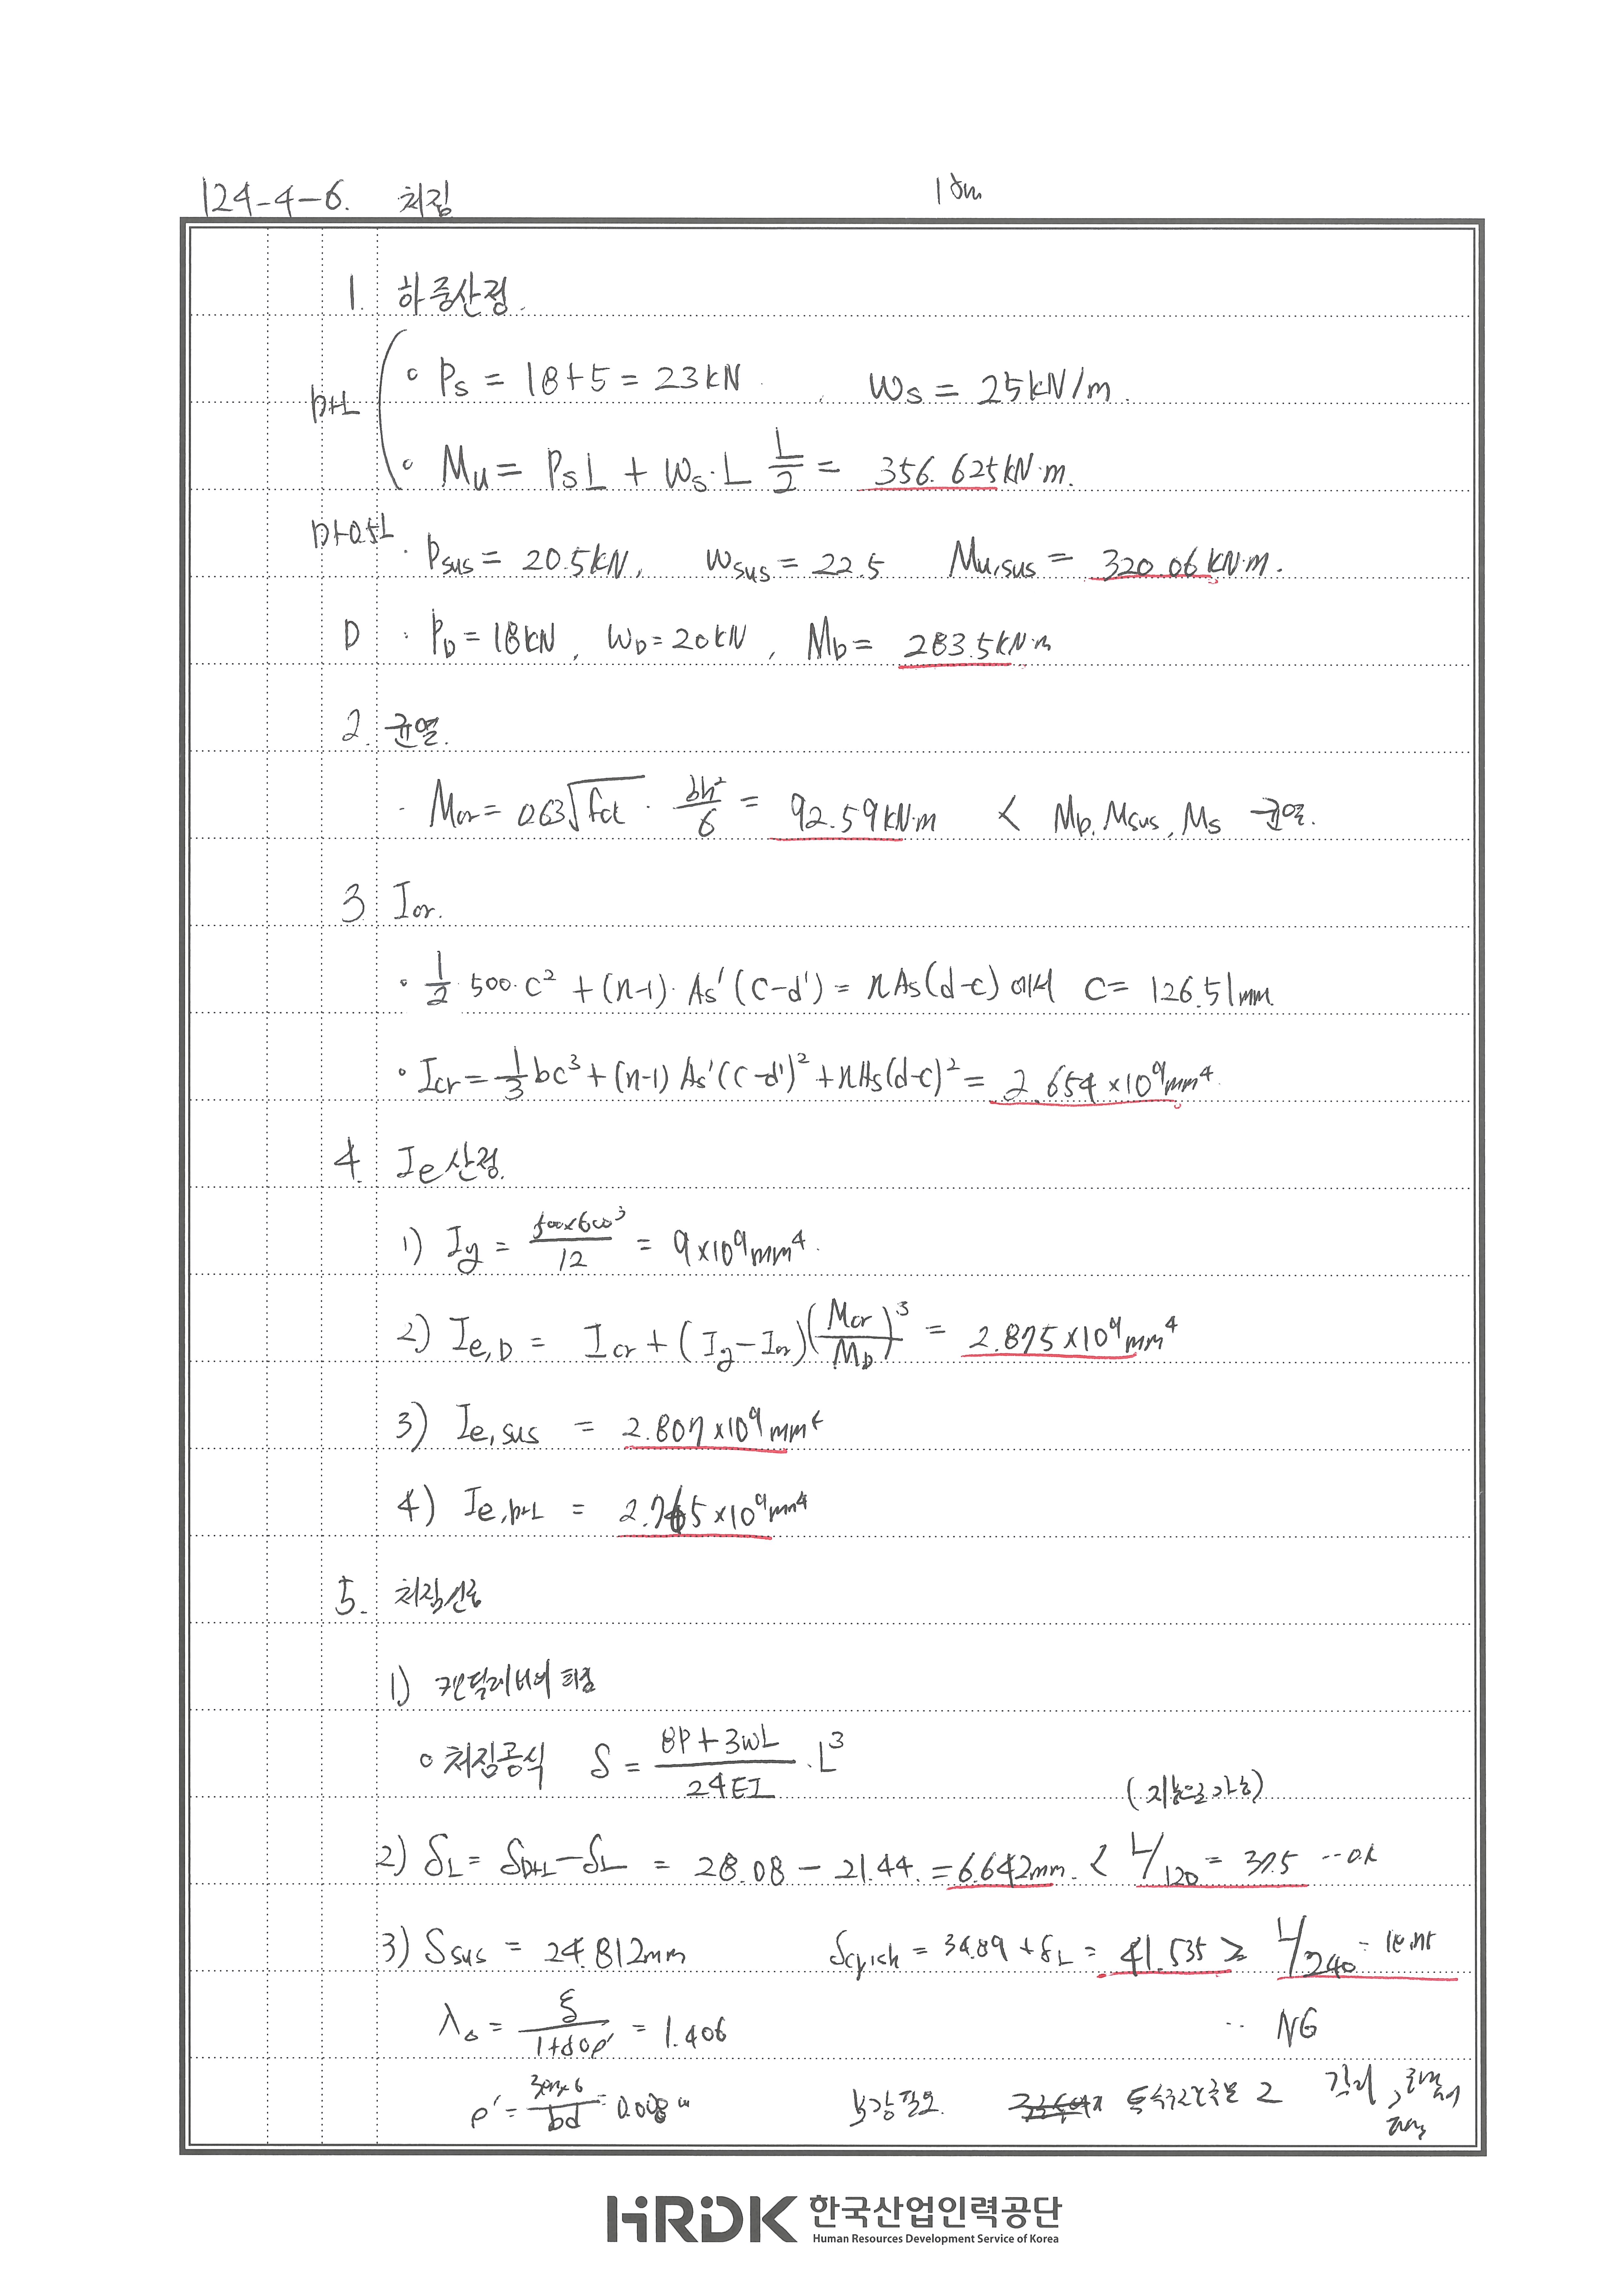 124-4-6. 처짐
1. 하중산정.
D+L
∘ Ps = 18+5 = 23kN. Ws = 25kN/m.
∘ Mu = PsL + Ws·L L/2 = 356.625kN·m.
D+0.5L
· Psus = 20.5kN, Wsus = 22.5 Mu,sus = 320.06kN·m.
D · PD = 18kN, WD = 20kN, MD = 283.5kN·m
2. 균열.
· Mcr = 0.63√fck · bh²/6 = 92.59kN·m < MD, Msus, Ms 균열.
3 Icr.
∘ 1/2 500·c² + (n-1)·As'(c-d') = nAs(d-c) 에서 c = 126.51mm.
∘ Icr = 1/3 bc³ + (n-1)As'(c-d')² + nAs(d-c)² = 2.654×10⁹mm⁴.
4. Ie 산정.
1) Ig = 500×600³/12 = 9×10⁹mm⁴.
2) Ie,D = Icr + (Ig-Icr)(Mcr/MD)³ = 2.875×10⁹mm⁴
3) Ie,sus = 2.807×10⁹mm⁴
4) Ie,D+L = 2.765×10⁹mm⁴
5. 처짐산정
1) 캔틸레버의 처짐
∘ 처짐공식 δ = 8P+3wL/24EI · L³
2) δL = δD+L - δL = 28.08 - 21.44. = 6.642mm. < L/120 = 37.5 ··O.K
3) δsus = 24.812mm = 34.89 + δL = 41.535 ≥ L/240
λΔ = ξ/1+50ρ' = 1.406 ·· NG
ρ' = /bd = 보강필요.
HRDK 한국산업인력공단
Human Resources Development Service of Korea